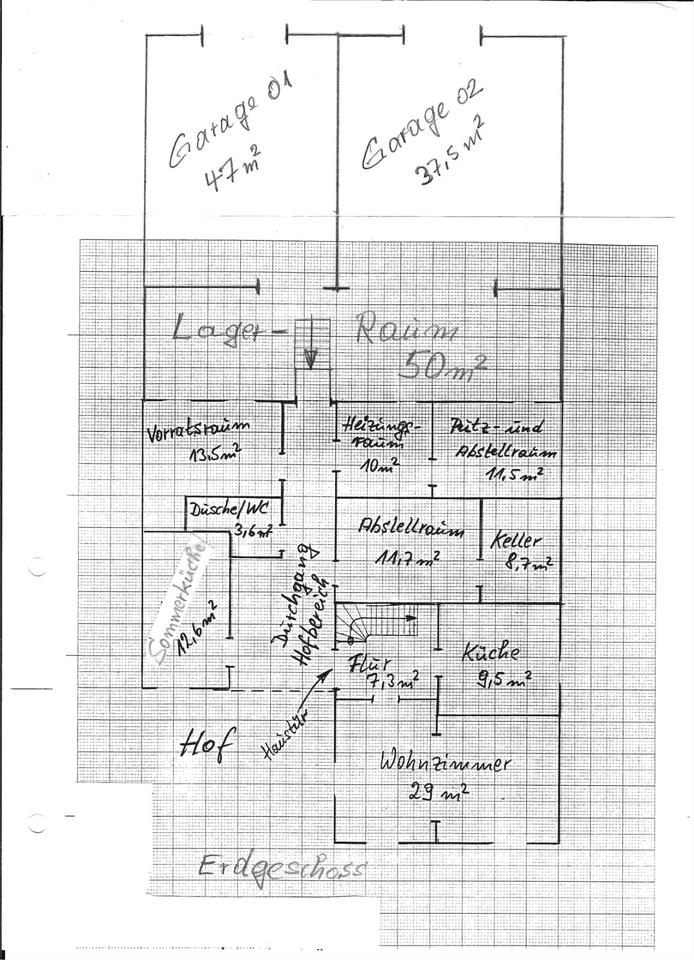 Garage 01
47 m²
Garage 02
37,5 m²
Lager-Raum
50 m²
Vorratsraum
13,5 m²
Heizungs-
raum
10 m²
Putz- und
Abstellraum
11,5 m²
Dusche/WC
3,6 m²
Abstellraum
11,7 m²
Keller
8,7 m²
Sommerküche
12,6 m²
Durchgang
Hofbereich
Flur
7,3 m²
Küche
9,5 m²
Haustür
Hof
Wohnzimmer
29 m²
Erdgeschoss